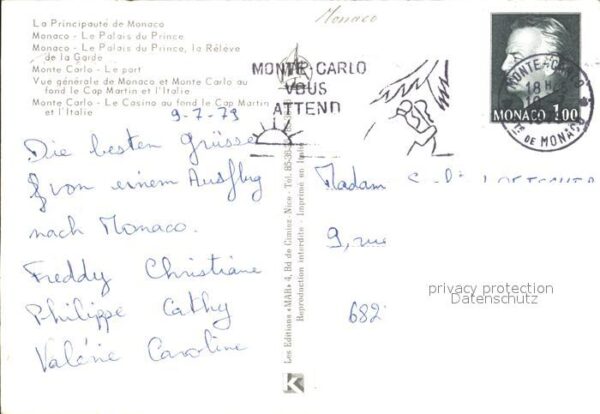 La Principauté de Monaco
Monaco - Le Palais du Prince
Monaco - Le Palais du Prince, la Relève
de la Garde
Monte Carlo - Le port
Vue générale de Monaco et Monte Carlo au
fond le Cap Martin et l'Italie
Monte Carlo - Le Casino au fond le Cap Martin
et l'Italie
Monaco
MONTE-CARLO
VOUS
ATTEND
MONTE-CARLO
18 H
PTé DE MONACO
MONACO 1,00
9-7-79
Die besten Grüsse
von einem Ausflug
nach Monaco.
Freddy Christiane
Philippe Cathy
Valérie Caroline
Les Editions «MAR» 4, Bd de Cimiez - Nice - Tél.
Reproduction interdite - Imprimé en Italy
Madam
9, rue
682
privacy protection
Datenschutz
K